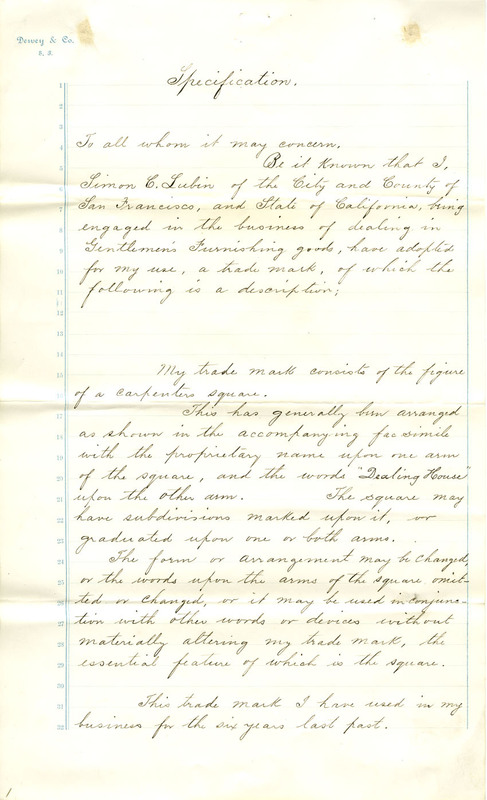 Dewey & Co.
S. F.
Specification.
To all whom it may concern.
Be it Known that I,
Simon C. Lubin of the City and County of
San Francisco, and State of California, being
engaged in the business of dealing in
Gentlemen's Furnishing goods, have adopted
for my use, a trade mark, of which the
following is a description;
My trade mark consists of the figure
of a carpenters square.
This has generally been arranged
as shown in the accompanying fac simile
with the proprietary name upon one arm
of the square, and the words "Dealing House"
upon the other arm. The square may
have subdivisions marked upon it, or
graduated upon one or both arms.
The form or arrangement may be changed,
or the words upon the arms of the square omit-
ted or changed, or it may be used in conjunc-
tion with other words or devices without
materially altering my trade mark, the
essential feature of which is the square.
This trade mark I have used in my
business for the six years last past.
1